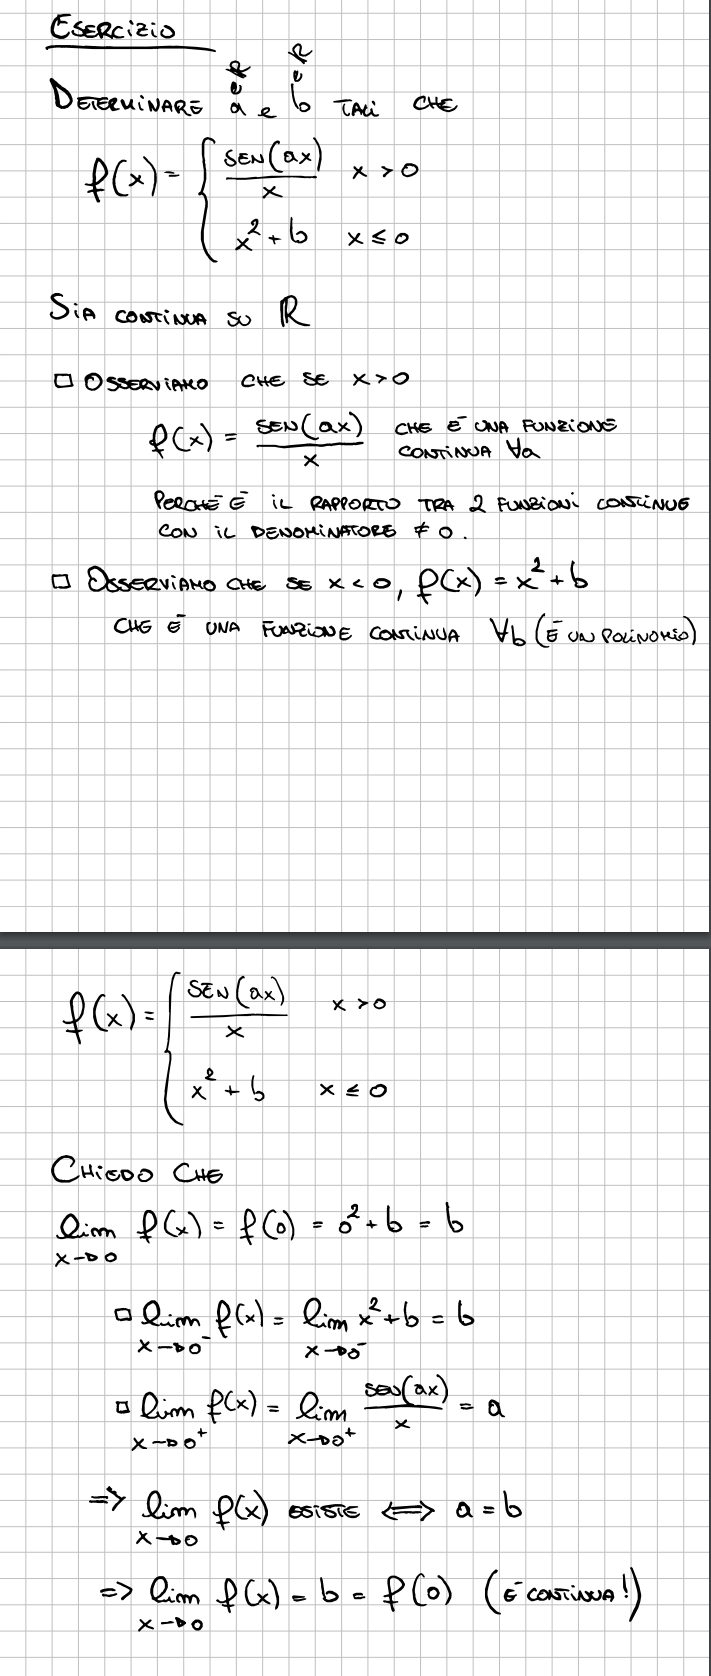 ESERCIZIO
DETERMINARE a ∈ ℝ e b ∈ ℝ TALI CHE
f(x) = { SEN(ax)/x x > 0
x² + b x ≤ 0
SIA CONTINUA SU ℝ
□ OSSERVIAMO CHE SE x > 0
f(x) = SEN(ax)/x CHE È UNA FUNZIONE
CONTINUA ∀a
PERCHÈ È IL RAPPORTO TRA 2 FUNZIONI CONTINUE
CON IL DENOMINATORE ≠ 0.
□ OSSERVIAMO CHE SE x < 0, f(x) = x² + b
CHE È UNA FUNZIONE CONTINUA ∀b (È UN POLINOMIO)
f(x) = { SEN(ax)/x x > 0
x² + b x ≤ 0
CHIEDO CHE
lim x→0 f(x) = f(0) = 0² + b = b
□ lim x→0⁻ f(x) = lim x→0⁻ x² + b = b
□ lim x→0⁺ f(x) = lim x→0⁺ SEN(ax)/x = a
=> lim x→0 f(x) ESISTE <=> a = b
=> lim x→0 f(x) = b = f(0) (È CONTINUA!)